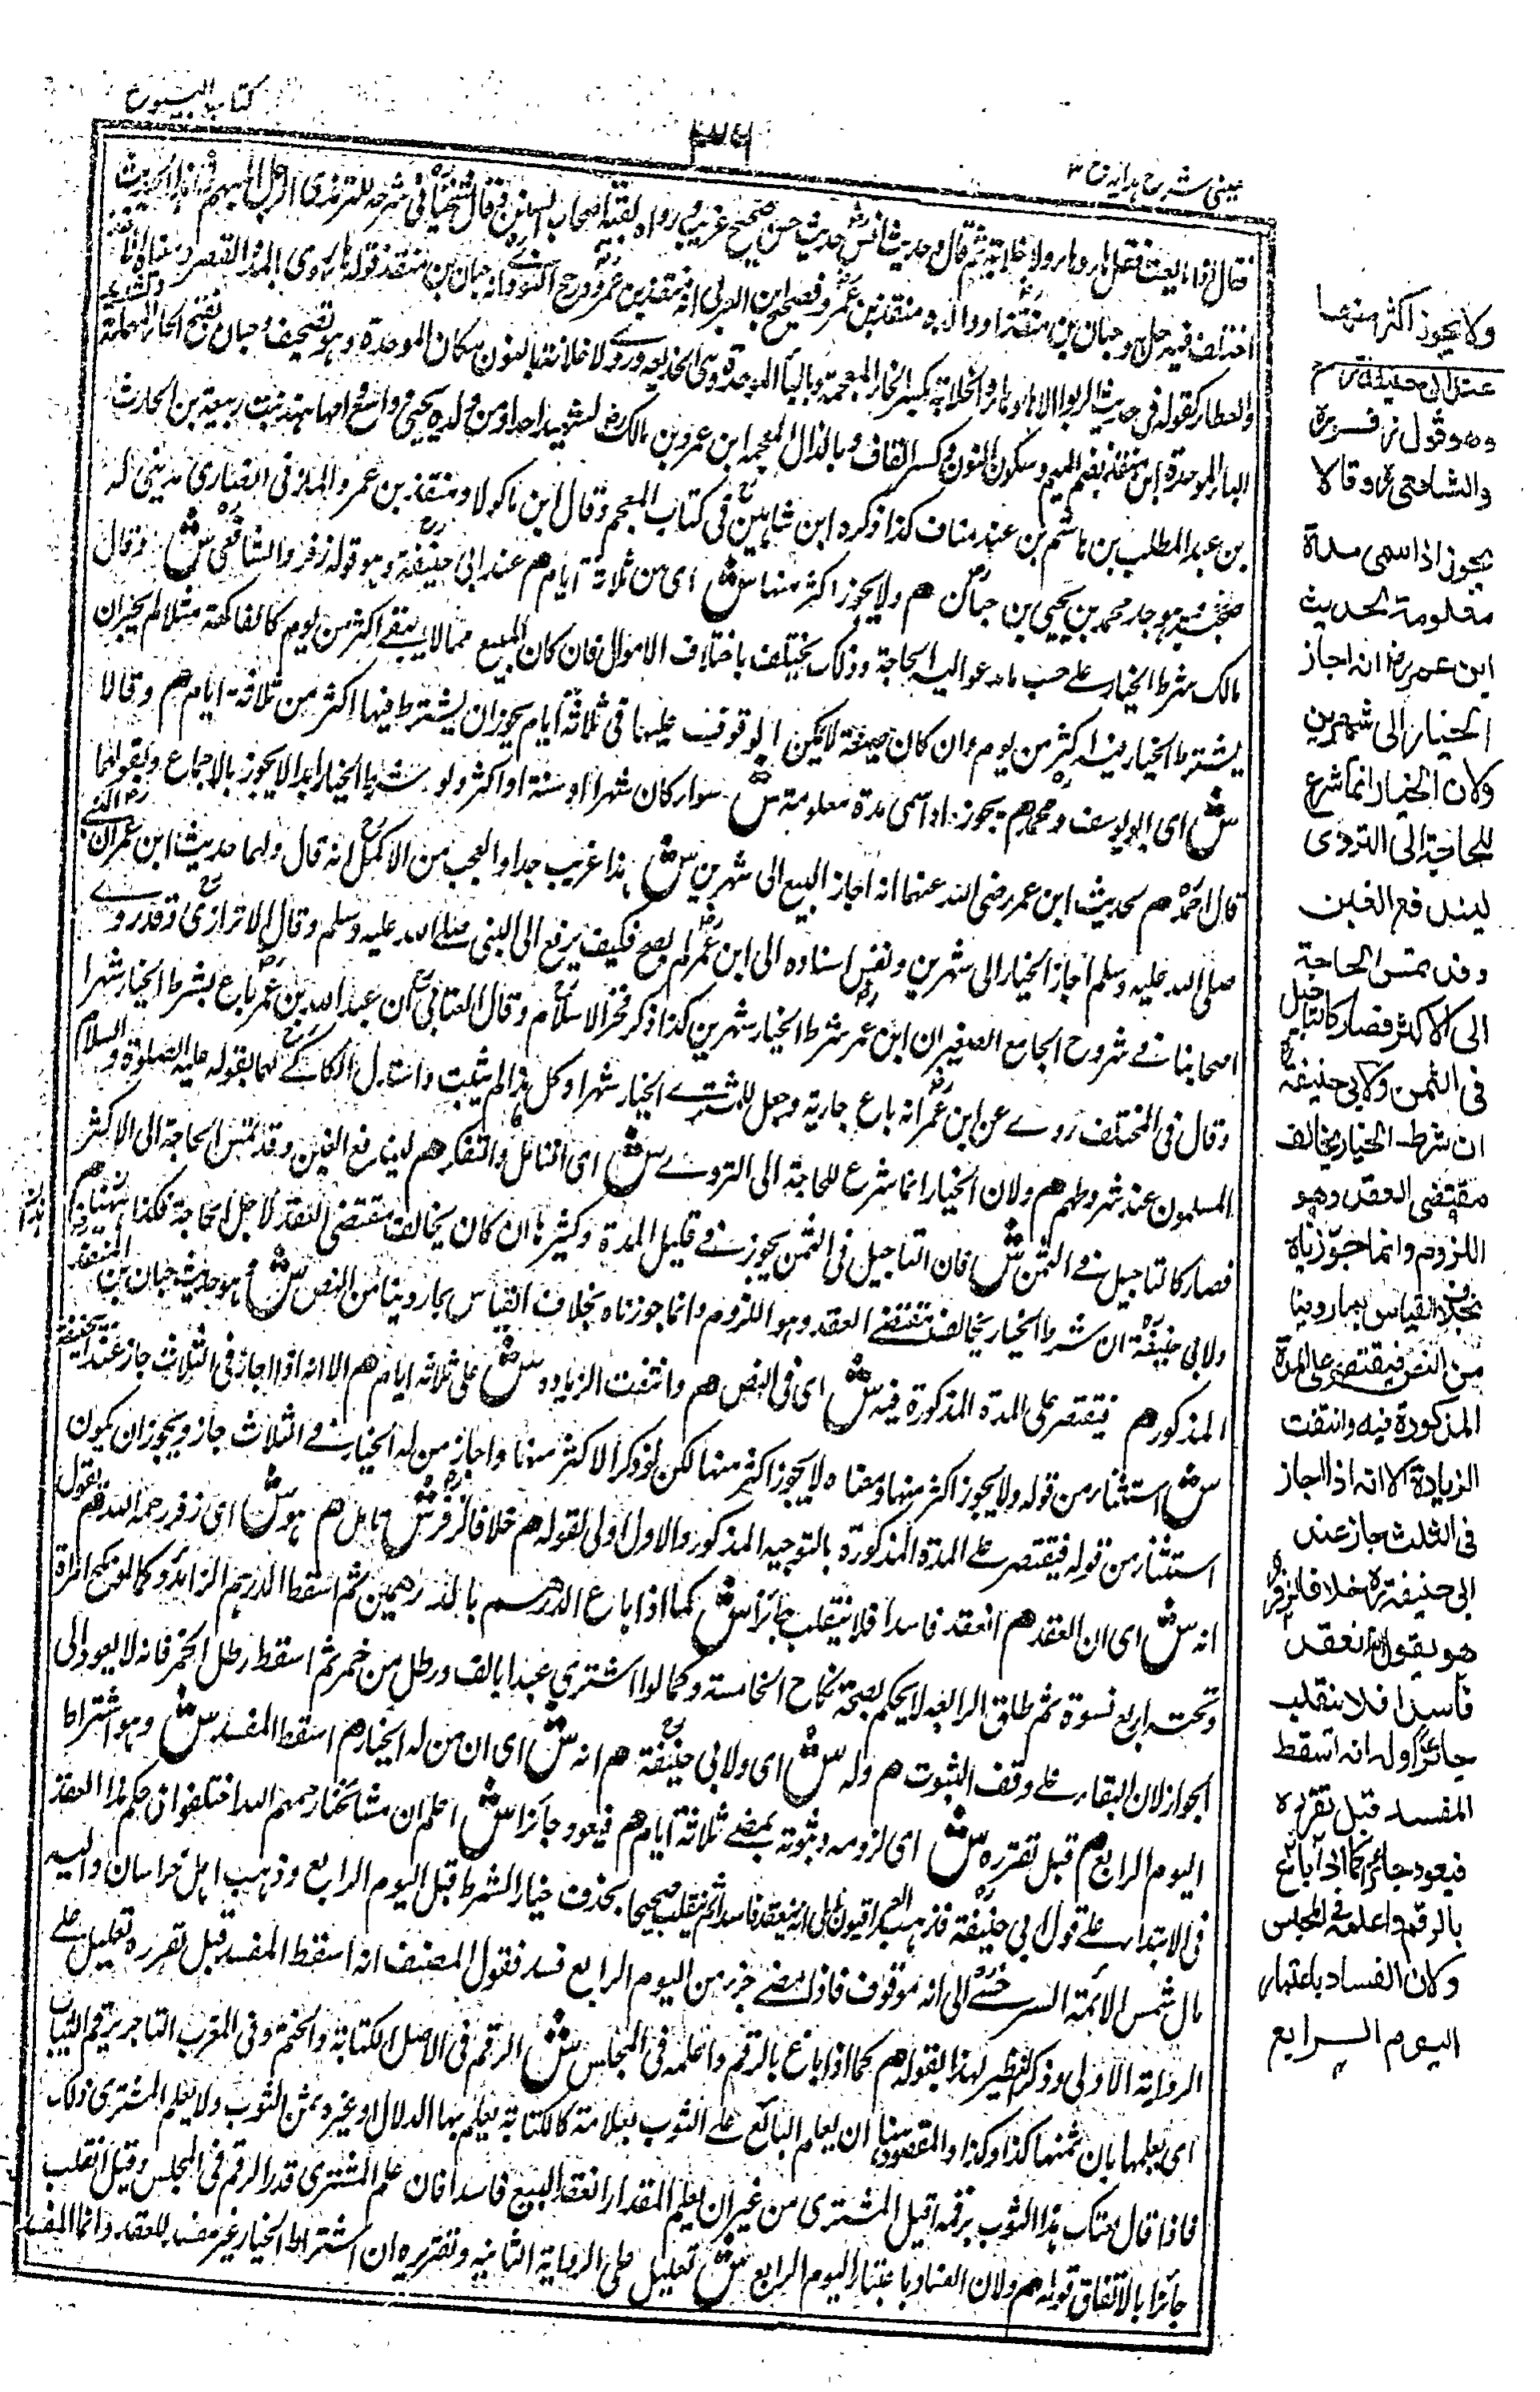 كتاب البيوع
٣٧٦
عينى شرح هدايه ج ٣
فقال اذا بايعت فقل هاء وهاء ولا خلابة ثم قال وحديث انس حديث حسن صحيح غريب ورواه بقية اصحاب السنن وقال شيخنا فى شرحه للترمذى الرجل المبهم فى هذا الحديث
اختلف فيه هل هو حبان بن منقذ او والده منقذ بن عمرو فصحح ابن العربى انه منقذ بن عمرو ورجح النووى انه حبان بن منقذ قوله هاء روى بالمد والقصر
والعطار كقوله فى حديث الربوا الا هاء وهاء والخلابة بكسر الخاء المعجمة وبالباء الموحدة وهى الخديعة وروى ولا خلانة بالنون مكان الموحدة وهو تصحيف وحبان بفتح الحاء المهملة وتشديد
الباء الموحدة ابن منقذ بضم الميم وسكون النون وكسر القاف وبالذال المعجمة ابن عمرو بن مالك رض شهيد احد او من ولده يحيى وواسع امهما هند بنت ربيعة بن الحارث
بن عبد المطلب بن هاشم بن عبد مناف كذا ذكره ابن شاهين فى كتاب المعجم وقال ابن ماكولا ومنقذ بن عمرو المازنى انصارى مدينى له
صحبة وهو جد محمد بن يحيى بن حبان هم ولا يجوز اكثر منها ش اى من ثلاثة ايام هم عند ابى حنيفة وهو قول زفر والشافعى ش وقال
مالك شرط الخيار على حسب ما تدعو اليه الحاجة وذلك يختلف باختلاف الاموال فان كان المبيع مما لا يبقى اكثر من يوم كالفاكهة مثلا لم يجز ان
يشترط الخيار فيه اكثر من يوم وان كان ضيعة لا يمكن الوقوف عليها فى ثلاثة ايام يجوز ان يشترط فيها اكثر من ثلاثة ايام هم وقالا
ش اى ابو يوسف ومحمد هم يجوز اذا سمى مدة معلومة ش سواء كان شهرا او سنة او اكثر ولو شرطا الخيار ابدا لا يجوز بالاجماع وبقولهما
قال احمد هم لحديث ابن عمر رضى الله عنهما انه اجاز البيع الى شهرين ش هذا غريب جدا والعجب من الاكمل انه قال ولهما حديث ابن عمر ان النبى
صلى الله عليه وسلم اجاز الخيار الى شهرين ونفس اسناده الى ابن عمر لم يصح فكيف يرفع الى النبى صلى الله عليه وسلم وقال الاترازى وقد روى
اصحابنا فى شروح الجامع الصغير ان ابن عمر شرط الخيار شهرين كذا ذكر فخر الاسلام وقال العتابى ان عبد الله بن عمر باع بشرط الخيار شهرا
وقال فى المختلف روى عن ابن عمر انه باع جارية وجعل للمشترى الخيار شهرا وكل هذا لم يثبت واستدل الكاكى لهما بقوله عليه الصلوة والسلام
المسلمون عند شروطهم هم ولان الخيار انما شرع للحاجة الى التروى ش اى التامل والتفكر هم ليندفع الغبن وقد تمس الحاجة الى الاكثر
فصار كالتاجيل فى الثمن ش فان التاجيل فى الثمن يجوز فى قليل المدة وكثيرها ان كان يخالف مقتضى العقد لاجل الحاجة فكذا هنا هم
ولابى حنيفة ان شرط الخيار يخالف مقتضى العقد وهو اللزوم وانما جوزناه بخلاف القياس بما روينا من النص ش وهو حديث حبان بن المنقذ
المذكور هم فيقتصر على المدة المذكورة فيه ش اى فى النص هم وانتفت الزيادة ش على ثلاثة ايام هم الا انه اذا اجاز فى الثلاث جاز عند ابى حنيفة
ش استثناء من قوله ولا يجوز اكثر منها ومعناه لا يجوز اكثر منها لكن لو ذكر الاكثر منها واجاز من له الخيار فى الثلاث جاز ويجوز ان يكون
استثناء من قوله فيقتصر على المدة المذكورة بالتوجيه المذكور والاول اولى لقوله هم خلافا لزفر ش قابل هم هو ش اى زفر رحمه الله هم يقول
انه ش اى ان العقد هم انعقد فاسدا فلا ينقلب جائزا ش كما اذا باع الدرهم بالدرهمين ثم اسقط الدرهم الزائد وكما لو نكح امراة
وتحته اربع نسوة ثم طلق الرابعة لا يحكم بصحة نكاح الخامسة وكما لو اشترى عبدا بالف ورطل من خمر ثم اسقط رطل الخمر فانه لا يعود الى
الجواز لان البقاء على وقف الثبوت هم وله ش اى ولابى حنيفة هم انه ش اى ان من له الخيار هم اسقط المفسد ش وهو اشتراط
اليوم الرابع هم قبل تقرره ش اى لزومه وثبوته بمضى ثلاثة ايام هم فيعود جائزا ش اعلم ان مشائخنا رحمهم الله اختلفوا فى حكم هذا العقد
فى الابتداء على قول ابى حنيفة فذهب العراقيون الى انه ينعقد فاسدا ثم ينقلب صحيحا بحذف خيار الشرط قبل اليوم الرابع وذهب اهل خراسان واليه
مال شمس الائمة السرخسى الى انه موقوف فاذا مضى جزء من اليوم الرابع فسد فقول المصنف انه اسقط المفسد قبل تقرره تعليل على
الرواية الاولى وذكر نظير لهذا بقوله هم كما اذا باع بالرقم واعلمه فى المجلس ش الرقم فى الاصل الكتابة والختم وفى المغرب التاجر يرقم الثياب
اى يعلمها بان ثمنها كذا وكذا والمقصود هنا ان يعلم البائع على الثوب بعلامة كالكتابة يعلم بها الدلال او غيره ثمن الثوب ولا يعلم المشترى ذلك
فاذا قال بعتك هذا الثوب برقمه اقبل المشترى من غير ان يعلم المقدار انعقد البيع فاسدا فان علم المشترى قدر الرقم فى المجلس وقبل انقلب
جائزا بالاتفاق قوله هم ولان الفساد باعتبار اليوم الرابع ش تعليل على الرواية الثانية وتقريره ان اشتراط الخيار غير مفسد للعقد وانما المفسد
ولا يجوز اكثر منها
عند ابى حنيفة رح
وهو قول زفر رح
والشافعى رح وقالا
يجوز اذا سمى مدة
معلومة لحديث
ابن عمر رض انه اجاز
الخيار الى شهرين
ولان الخيار انما شرع
للحاجة الى التروى
ليندفع الغبن
وقد تمس الحاجة
الى الاكثر فصار كالتاجيل
فى الثمن ولابى حنيفة رح
ان شرط الخيار يخالف
مقتضى العقد وهو
اللزوم وانما جوزناه
بخلاف القياس بما روينا
من النص فيقتصر على المدة
المذكورة فيه وانتفت
الزيادة الا انه اذا اجاز
فى الثلث جاز عند
ابى حنيفة رح خلافا لزفر رح
هو يقول انه انعقد
فاسدا فلا ينقلب
جائزا وله انه اسقط
المفسد قبل تقرره
فيعود جائزا كما اذا باع
بالرقم واعلمه فى المجلس
ولان الفساد باعتبار
اليوم الرابع